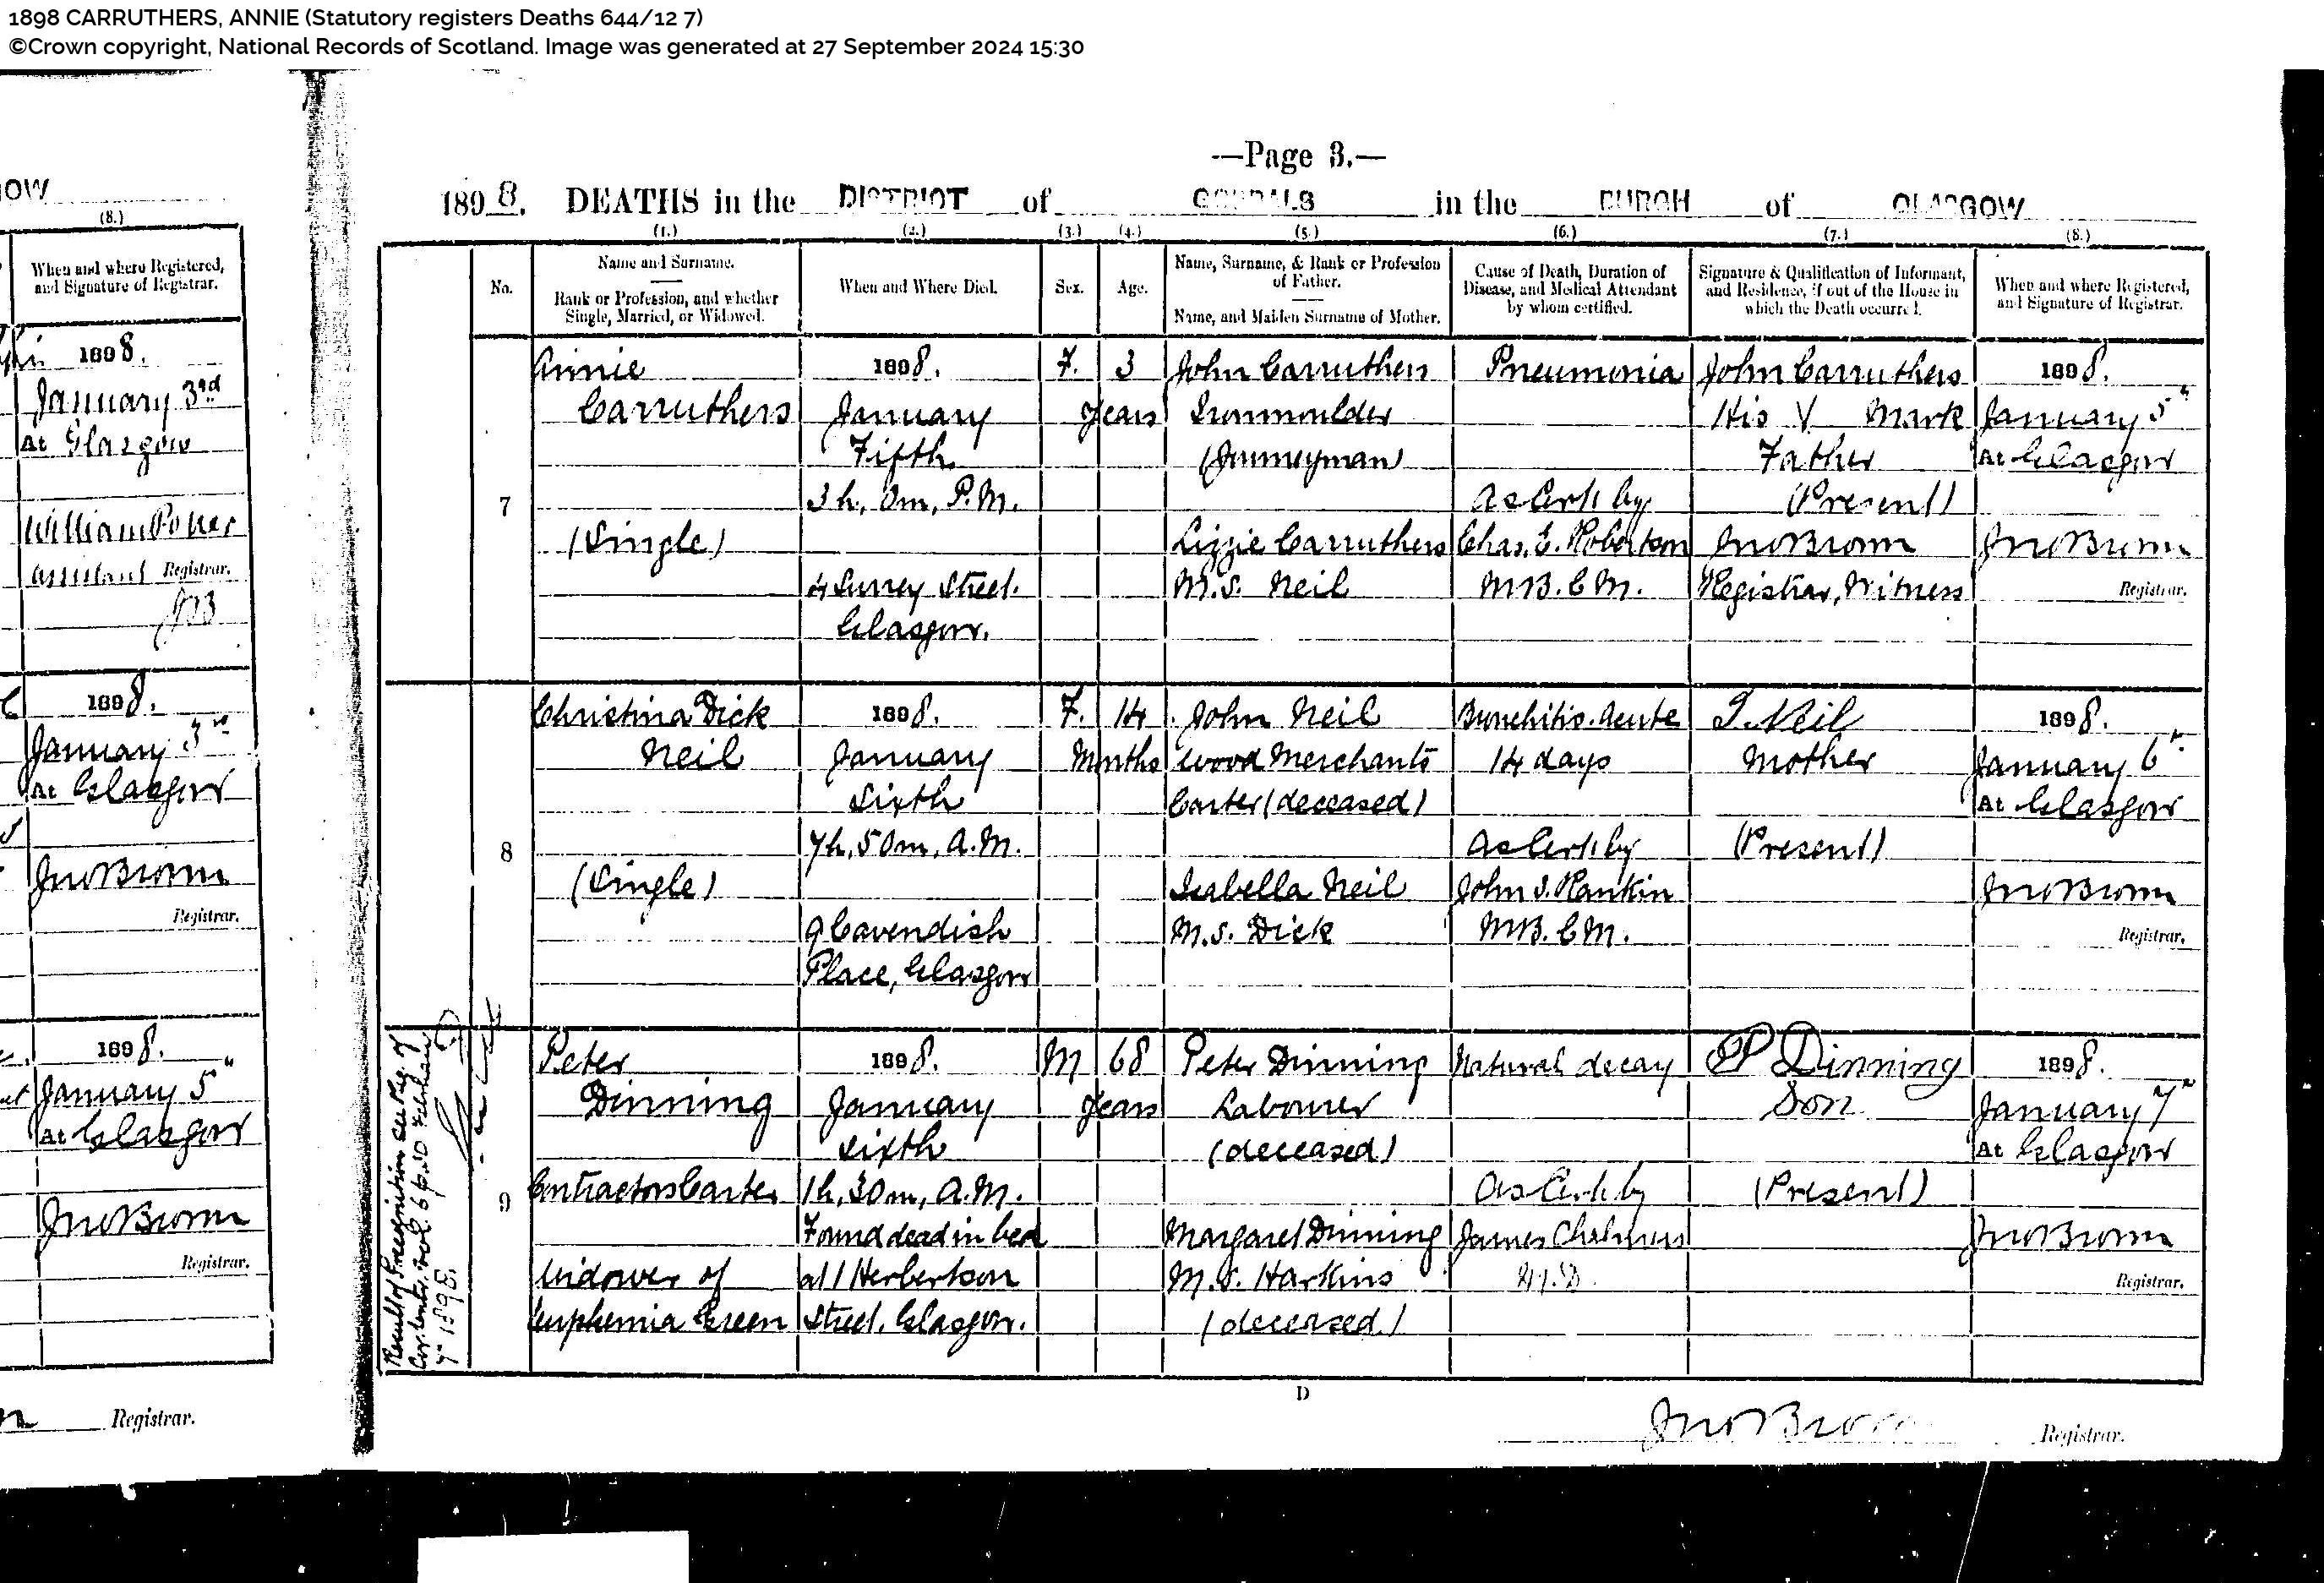 1898 CARRUTHERS, ANNIE (Statutory registers Deaths 644/12 7)
©Crown copyright, National Records of Scotland. Image was generated at 27 September 2024 15:30
OW
(8.)
When and where Registered,
and Signature of Registrar.
1898.
January 3rd
At Glasgow
William Potter
Assistant Registrar.
JB
1898.
January 3rd
At Glasgow
Jno Brown
Registrar.
1898.
January 5"
At Glasgow
Jno Brown
Registrar.
Registrar.
—Page 3.—
1898. DEATHS in the DISTRICT of GORBALS in the BURGH of GLASGOW
(1.) (2.) (3.) (4.) (5.) (6.) (7.) (8.)
No.
Name and Surname.
Rank or Profession, and whether
Single, Married, or Widowed.
When and Where Died.
Sex.
Age.
Name, Surname, & Rank or Profession
of Father.
Name, and Maiden Surname of Mother.
Cause of Death, Duration of
Disease, and Medical Attendant
by whom certified.
Signature & Qualification of Informant,
and Residence, if out of the House in
which the Death occurred.
When and where Registered,
and Signature of Registrar.
7
Annie
Carruthers
(Single)
1898.
January
Fifth
3h. 0m. P.M.
4 Surrey Street.
Glasgow.
F.
3
Years
John Carruthers
Ironmoulder
(Journeyman)
Lizzie Carruthers
M.S. Neil
Pneumonia
As Cert by
Chas. E. Robertson
M.B. C.M.
John Carruthers
His X Mark
Father
(Present)
Jno Brown
Registrar, Witness
1898.
January 5"
At Glasgow
Jno Brown
Registrar.
8
Christina Dick
Neil
(Single)
1898.
January
Sixth
7h. 50m. A.M.
9 Cavendish
Place, Glasgow
F.
14
Months
John Neil
Wood Merchants
Carter (deceased)
Isabella Neil
M.S. Dick
Bronchitis. Acute
14 days
As Cert by
John S. Rankin
M.B. C.M.
I. Neil
Mother
(Present)
1898.
January 6"
At Glasgow
Jno Brown
Registrar.
Result of Precognition see Reg. of
Cor. Ent. Vol. 6 p. 50 February
7" 1898.
9
Peter
Dinning
Contractors Carter
Widower of
Euphemia Green
1898.
January
Sixth
1h. 30m. A.M.
Found dead in bed
at 1 Herbertson
Street. Glasgow.
M
68
Years
Peter Dinning
Labourer
(deceased)
Margaret Dinning
M.S. Harkins
(deceased)
Natural decay
As Cert by
James Chalmers
M.D.
P Dinning
Son
(Present)
1898.
January 7"
At Glasgow
Jno Brown
Registrar.
D
Jno Brown Registrar.